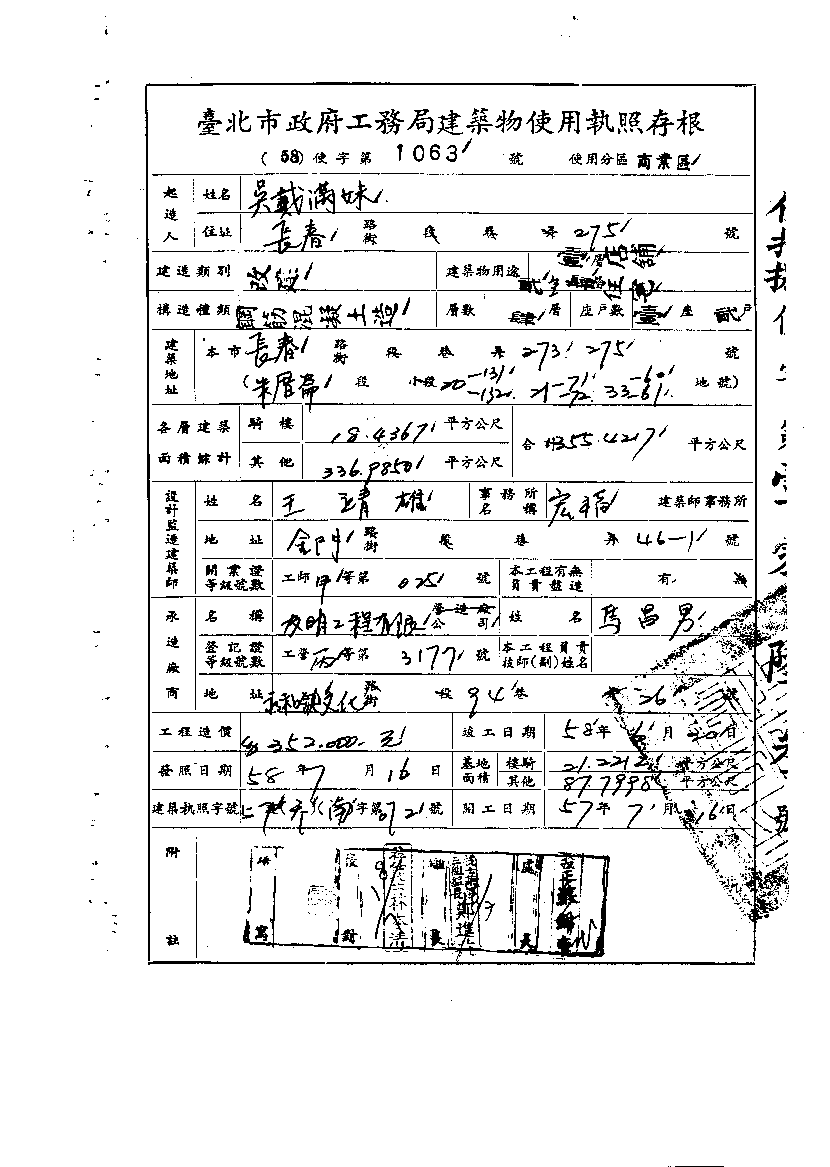 臺北市政府工務局建築物使用執照存根
(58)使字第 1063 號 使用分區 商業區
起造人 姓名 吳戴滿妹
住址 長春 路街 段 巷 弄 275 號
建造類別 改 建築物用途 店舖 住
構造種類 鋼筋混凝土造 層數 層 座戶數 壹 座 貳 戶
建築地址 本市 長春 路街 段 巷 弄 273 275 號
(朱厝崙 段 小段 20-131 -132 21-71 -72 33-60 -61 地號)
各層建築面積綜計 騎樓 18.4367 平方公尺 合計 355.4217 平方公尺
其他 336.9850 平方公尺
設計監造建築師 姓名 王靖雄 事務所名稱 宏 建築師事務所
地址 金門 路街 段 巷 弄 46-1 號
開業證等級號數 工師 甲 等第 025 號 本工程有無負責監造 有 無
承造廠商 名稱 友明工程有限 營造廠公司 姓名 馬昌男
登記證等級號數 工營 丙 等第 3177 號 本工程負責技師(副)姓名
地址 永和鎮文化 路街 段 94 巷 弄 26 號
工程造價 352.000.元 竣工日期 58 年 月 20 日
發照日期 58 年 7 月 16 日 基地面積 樓騎 21.2212 平方公尺
其他 87.7998 平方公尺
建築執照字號 57 字第 號 開工日期 57 年 7 月 16 日
附註 繕寫 校對 林本清 組長 處長